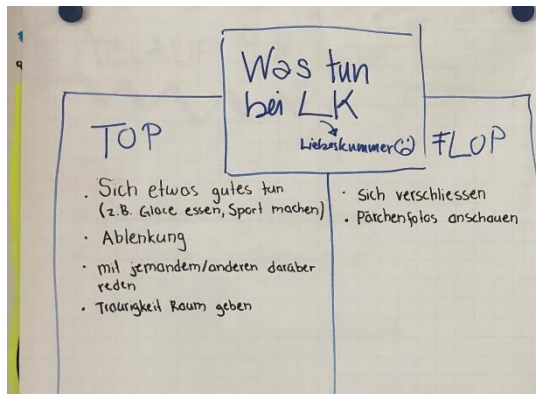 Was tun
bei LK
Liebeskummer
TOP
• Sich etwas gutes tun
(z.B. Glace essen, Sport machen)
• Ablenkung
• mit jemandem/anderen darüber
reden
• Traurigkeit Raum geben
FLOP
• Sich verschliessen
• Pärchenfotos anschauen